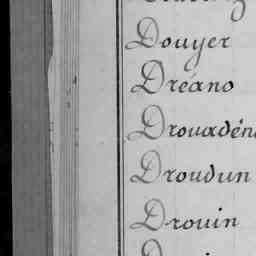 Douyer
Dréano
Drouadén
Droudun
Drouin